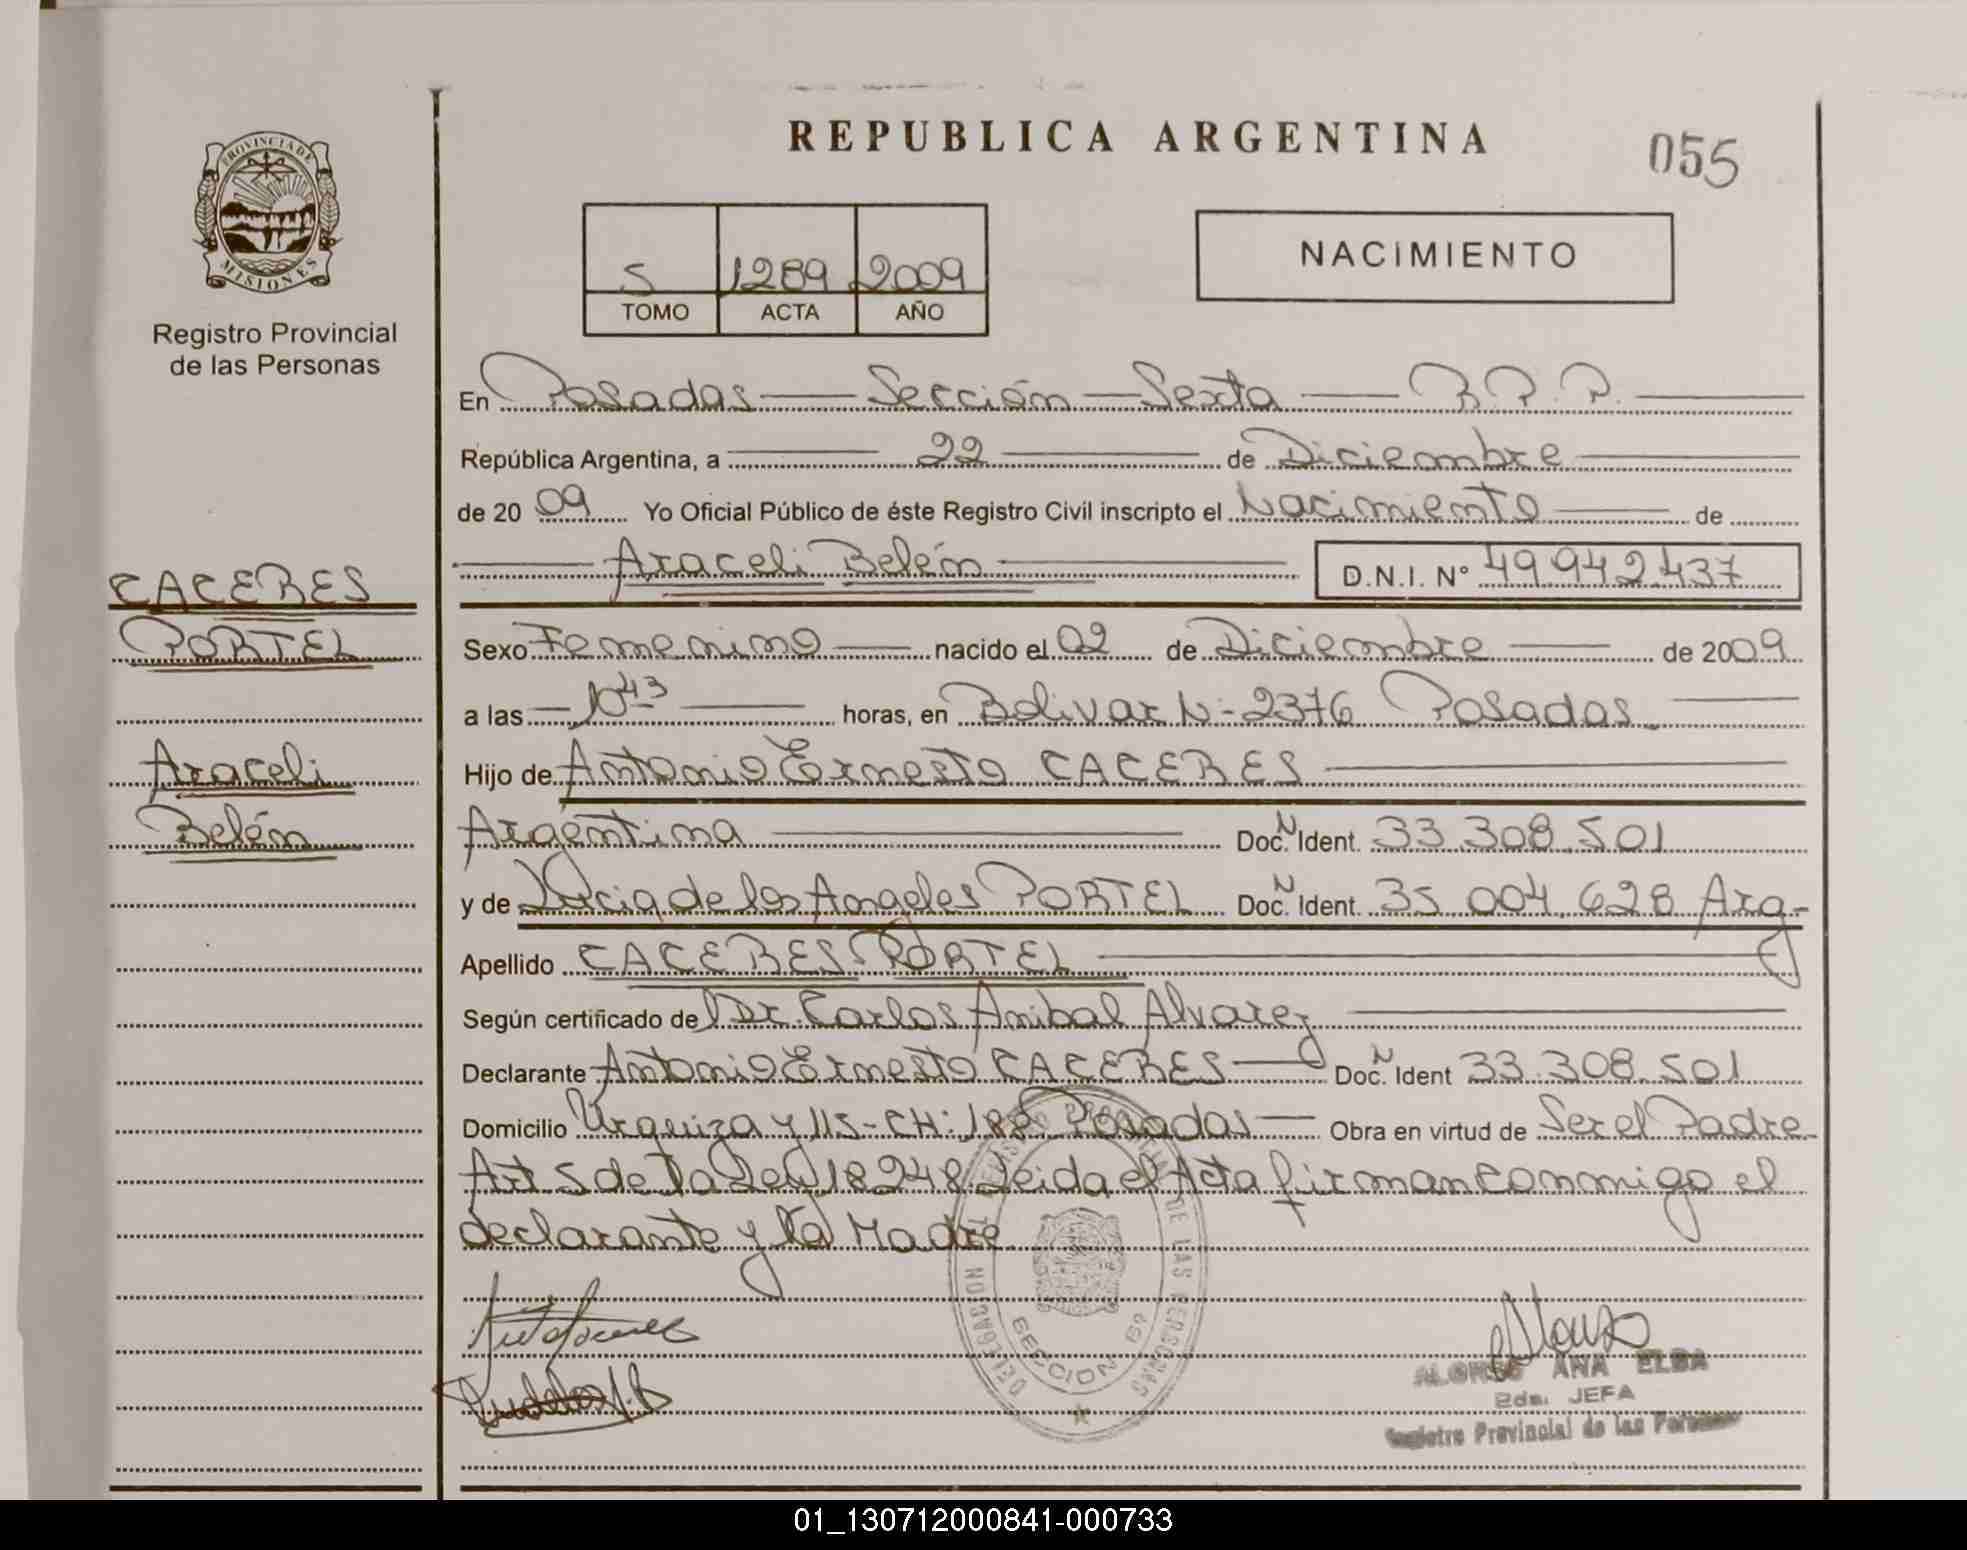 REPUBLICA ARGENTINA
055
PROVINCIA DE
MISIONES
Registro Provincial
de las Personas
S 1289 2009
TOMO ACTA AÑO
NACIMIENTO
En Posadas — Sección — Sexta — R.P.P.
República Argentina, a 22 de Diciembre
de 2009 Yo Oficial Público de éste Registro Civil inscripto el Nacimiento de
Araceli Belén D.N.I. Nº 49.942.437
CACERES
PORTEL
Araceli
Belén
Sexo Femenino nacido el 02 de Diciembre de 2009
a las 10 43 horas, en Bolivar Nº 2376 Posadas
Hijo de Antonio Ernesto CACERES
Argentina Doc. N Ident. 33.308.501
y de Lucia de los Angeles PORTEL Doc. N Ident. 35.004.628 Arg-
Apellido CACERES PORTEL
Según certificado de Dr. Carlos Anibal Alvarez
Declarante Antonio Ernesto CACERES Doc. N Ident 33.308.501
Domicilio Urquiza y 115-CH: 188 Posadas Obra en virtud de Ser el Padre
Art 5 de la Ley 18248. Leida el Acta firman conmigo el
declarante y la Madre
DELEGACION
DE LAS PERSONAS
SECCION 6º
ALONSO ANA ELBA
JEFA
Registro Provincial de las Personas
01_130712000841-000733